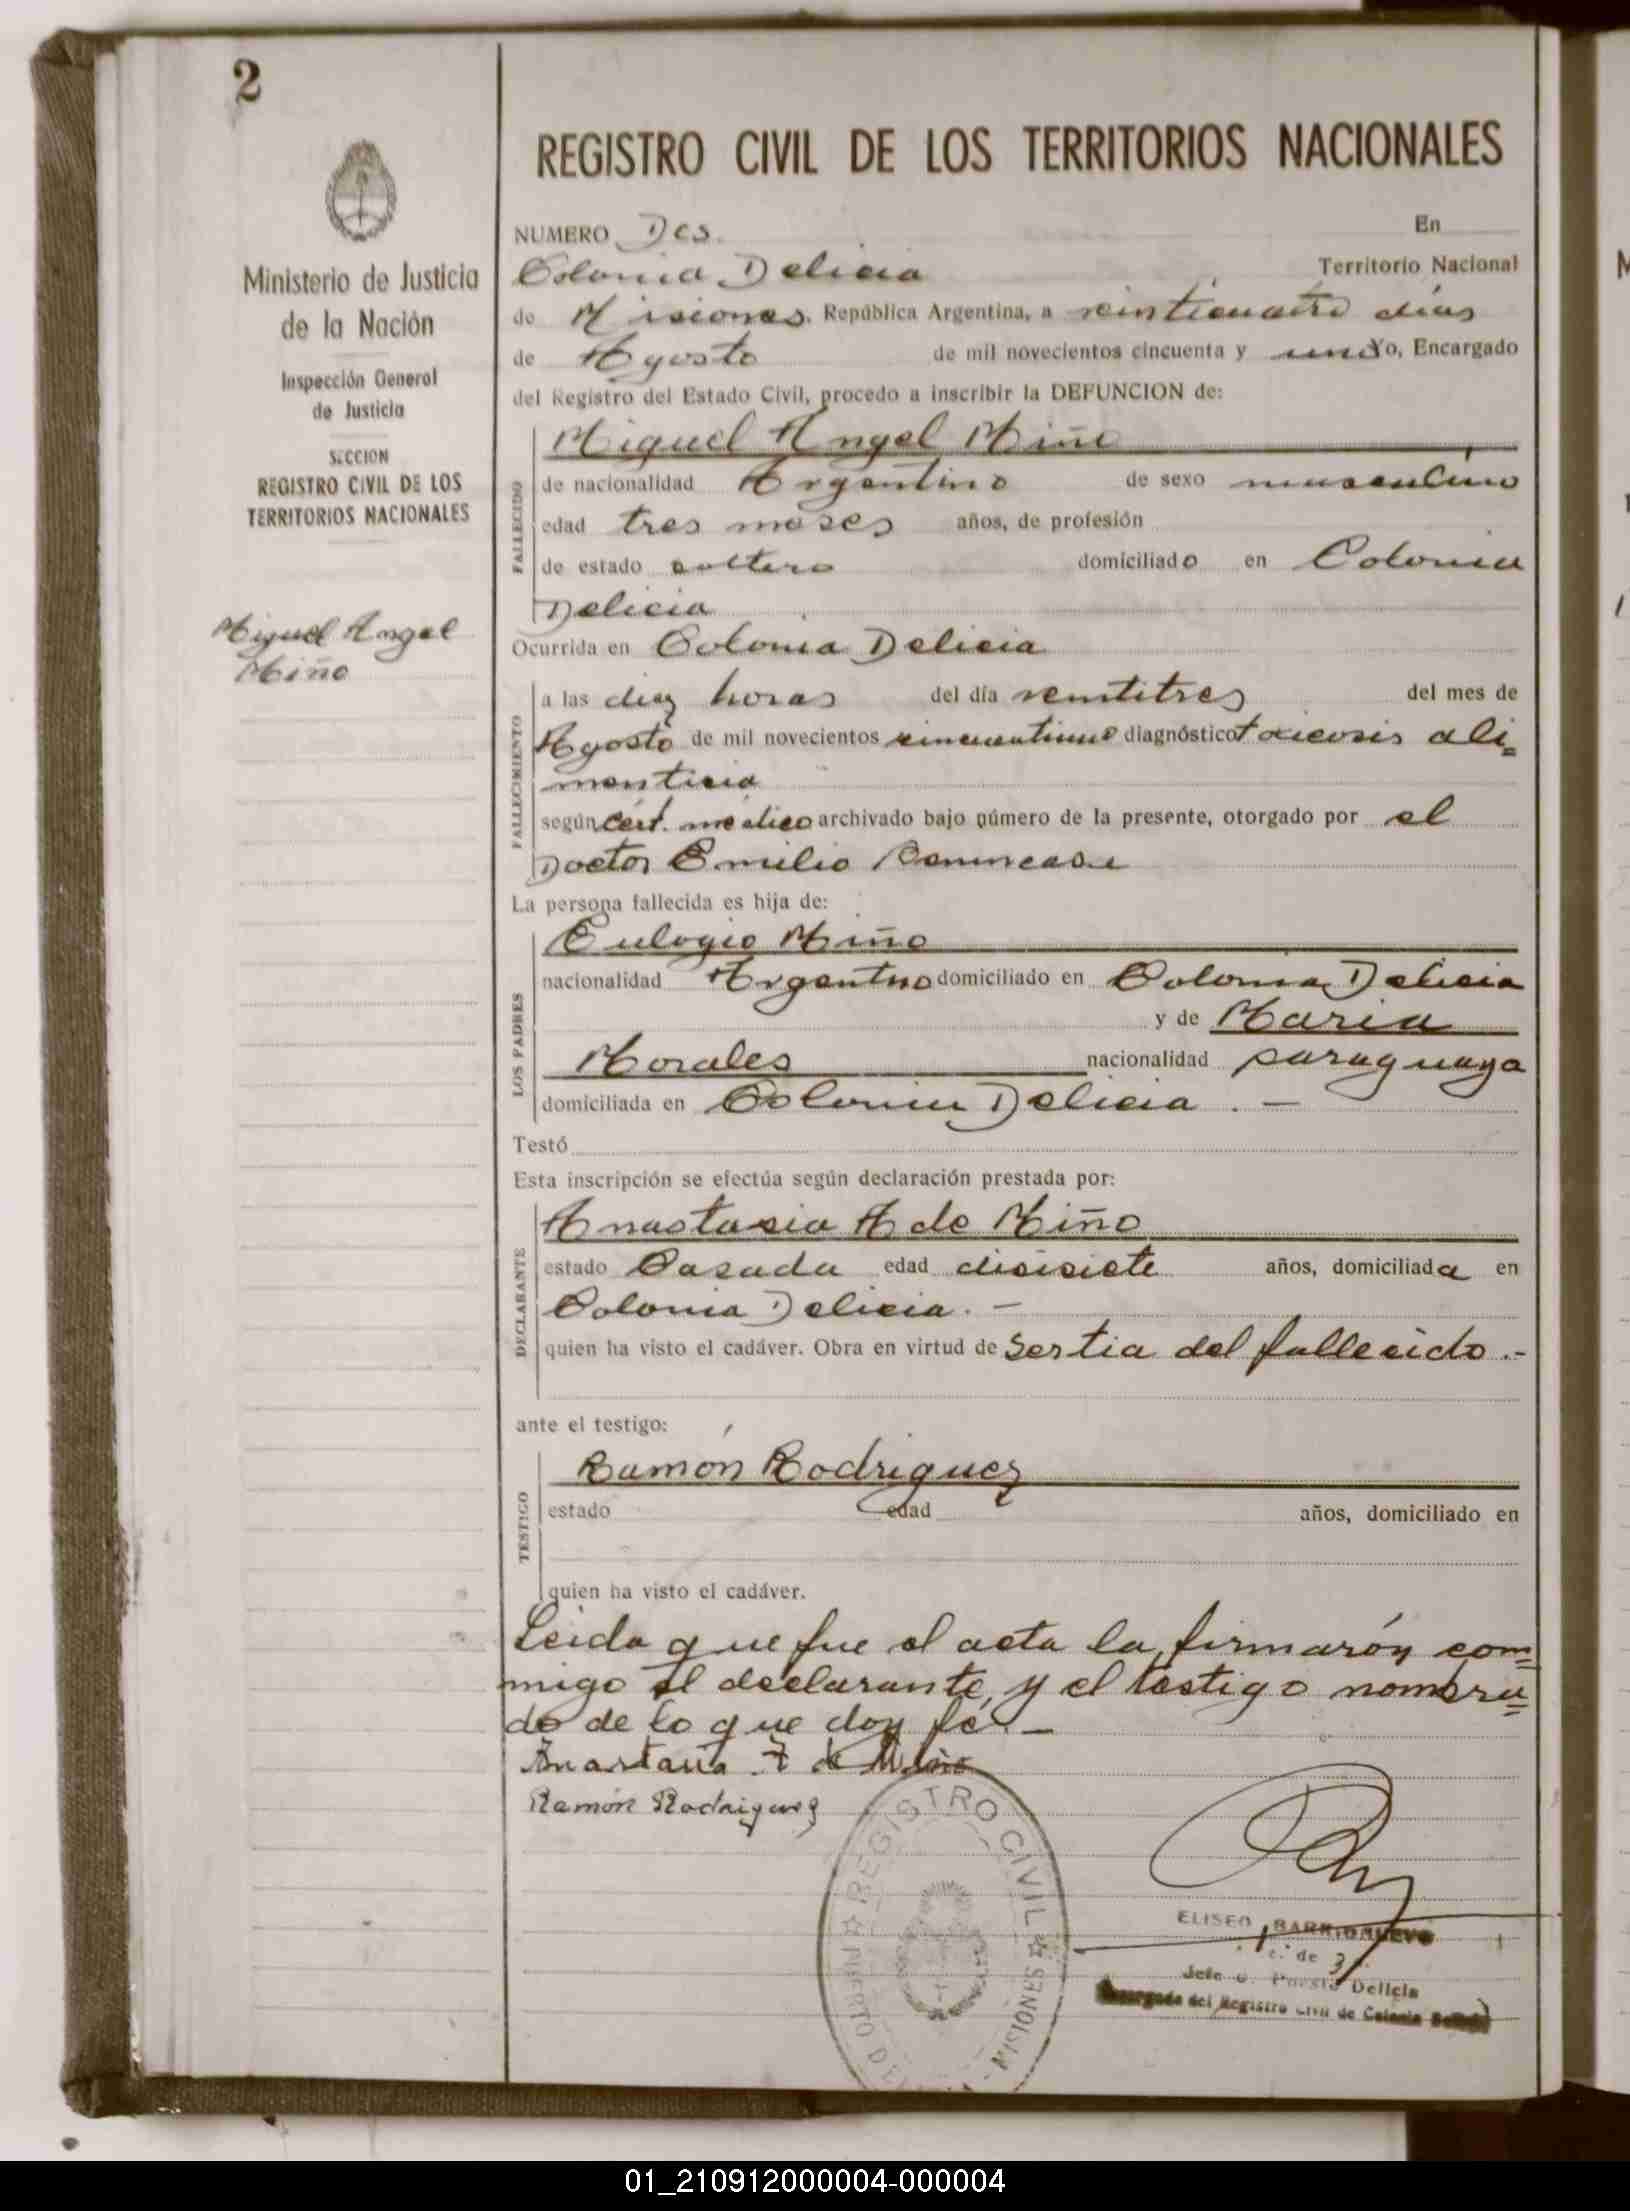 2
REGISTRO CIVIL DE LOS TERRITORIOS NACIONALES
Ministerio de Justicia
de la Nación
Inspección General
de Justicia
SECCION
REGISTRO CIVIL DE LOS
TERRITORIOS NACIONALES
Miguel Angel
Miño
NUMERO Dos. En
Colonia Delicia Territorio Nacional
de Misiones. República Argentina, a veinticuatro días
de Agosto de mil novecientos cincuenta y uno Yo, Encargado
del Registro del Estado Civil, procedo a inscribir la DEFUNCION de:
FALLECIDO
Miguel Angel Miño
de nacionalidad Argentino de sexo musculino
edad tres meses años, de profesión
de estado soltero domiciliado en Colonia
Delicia
Ocurrida en Colonia Delicia
FALLECIMIENTO
a las diez horas del día ventitres del mes de
Agosto de mil novecientos cincuentiuno diagnóstico toxicosis ali=
menticia
según cert. medico archivado bajo número de la presente, otorgado por el
Doctor Emilio
La persona fallecida es hija de:
LOS PADRES
Eulogio Miño
nacionalidad Argentino domiciliado en Colonia Delicia
y de Maria
Morales nacionalidad paraguaya
domiciliada en Colonia Delicia . —
Testó
Esta inscripción se efectúa según declaración prestada por:
DECLARANTE
Anastasia A de Miño
estado Casada edad disisiete años, domiciliada en
Colonia Delicia. —
quien ha visto el cadáver. Obra en virtud de Ser tia del fallecido .-
ante el testigo:
TESTIGO
Ramón Rodriguez
estado edad años, domiciliado en
quien ha visto el cadáver.
Leida que fue el acta la firmarón con=
migo el declarante, y el testigo nombra=
do de lo que doy fé. —
Anastacia A de Miño
Ramón Rodriguez
REGISTRO CIVIL
MISIONES
ELISEO BARRIONUEVO
de
Jefe Puesto Delicia
Encargado del Registro Civil de Colonia Delicia
01_210912000004-000004